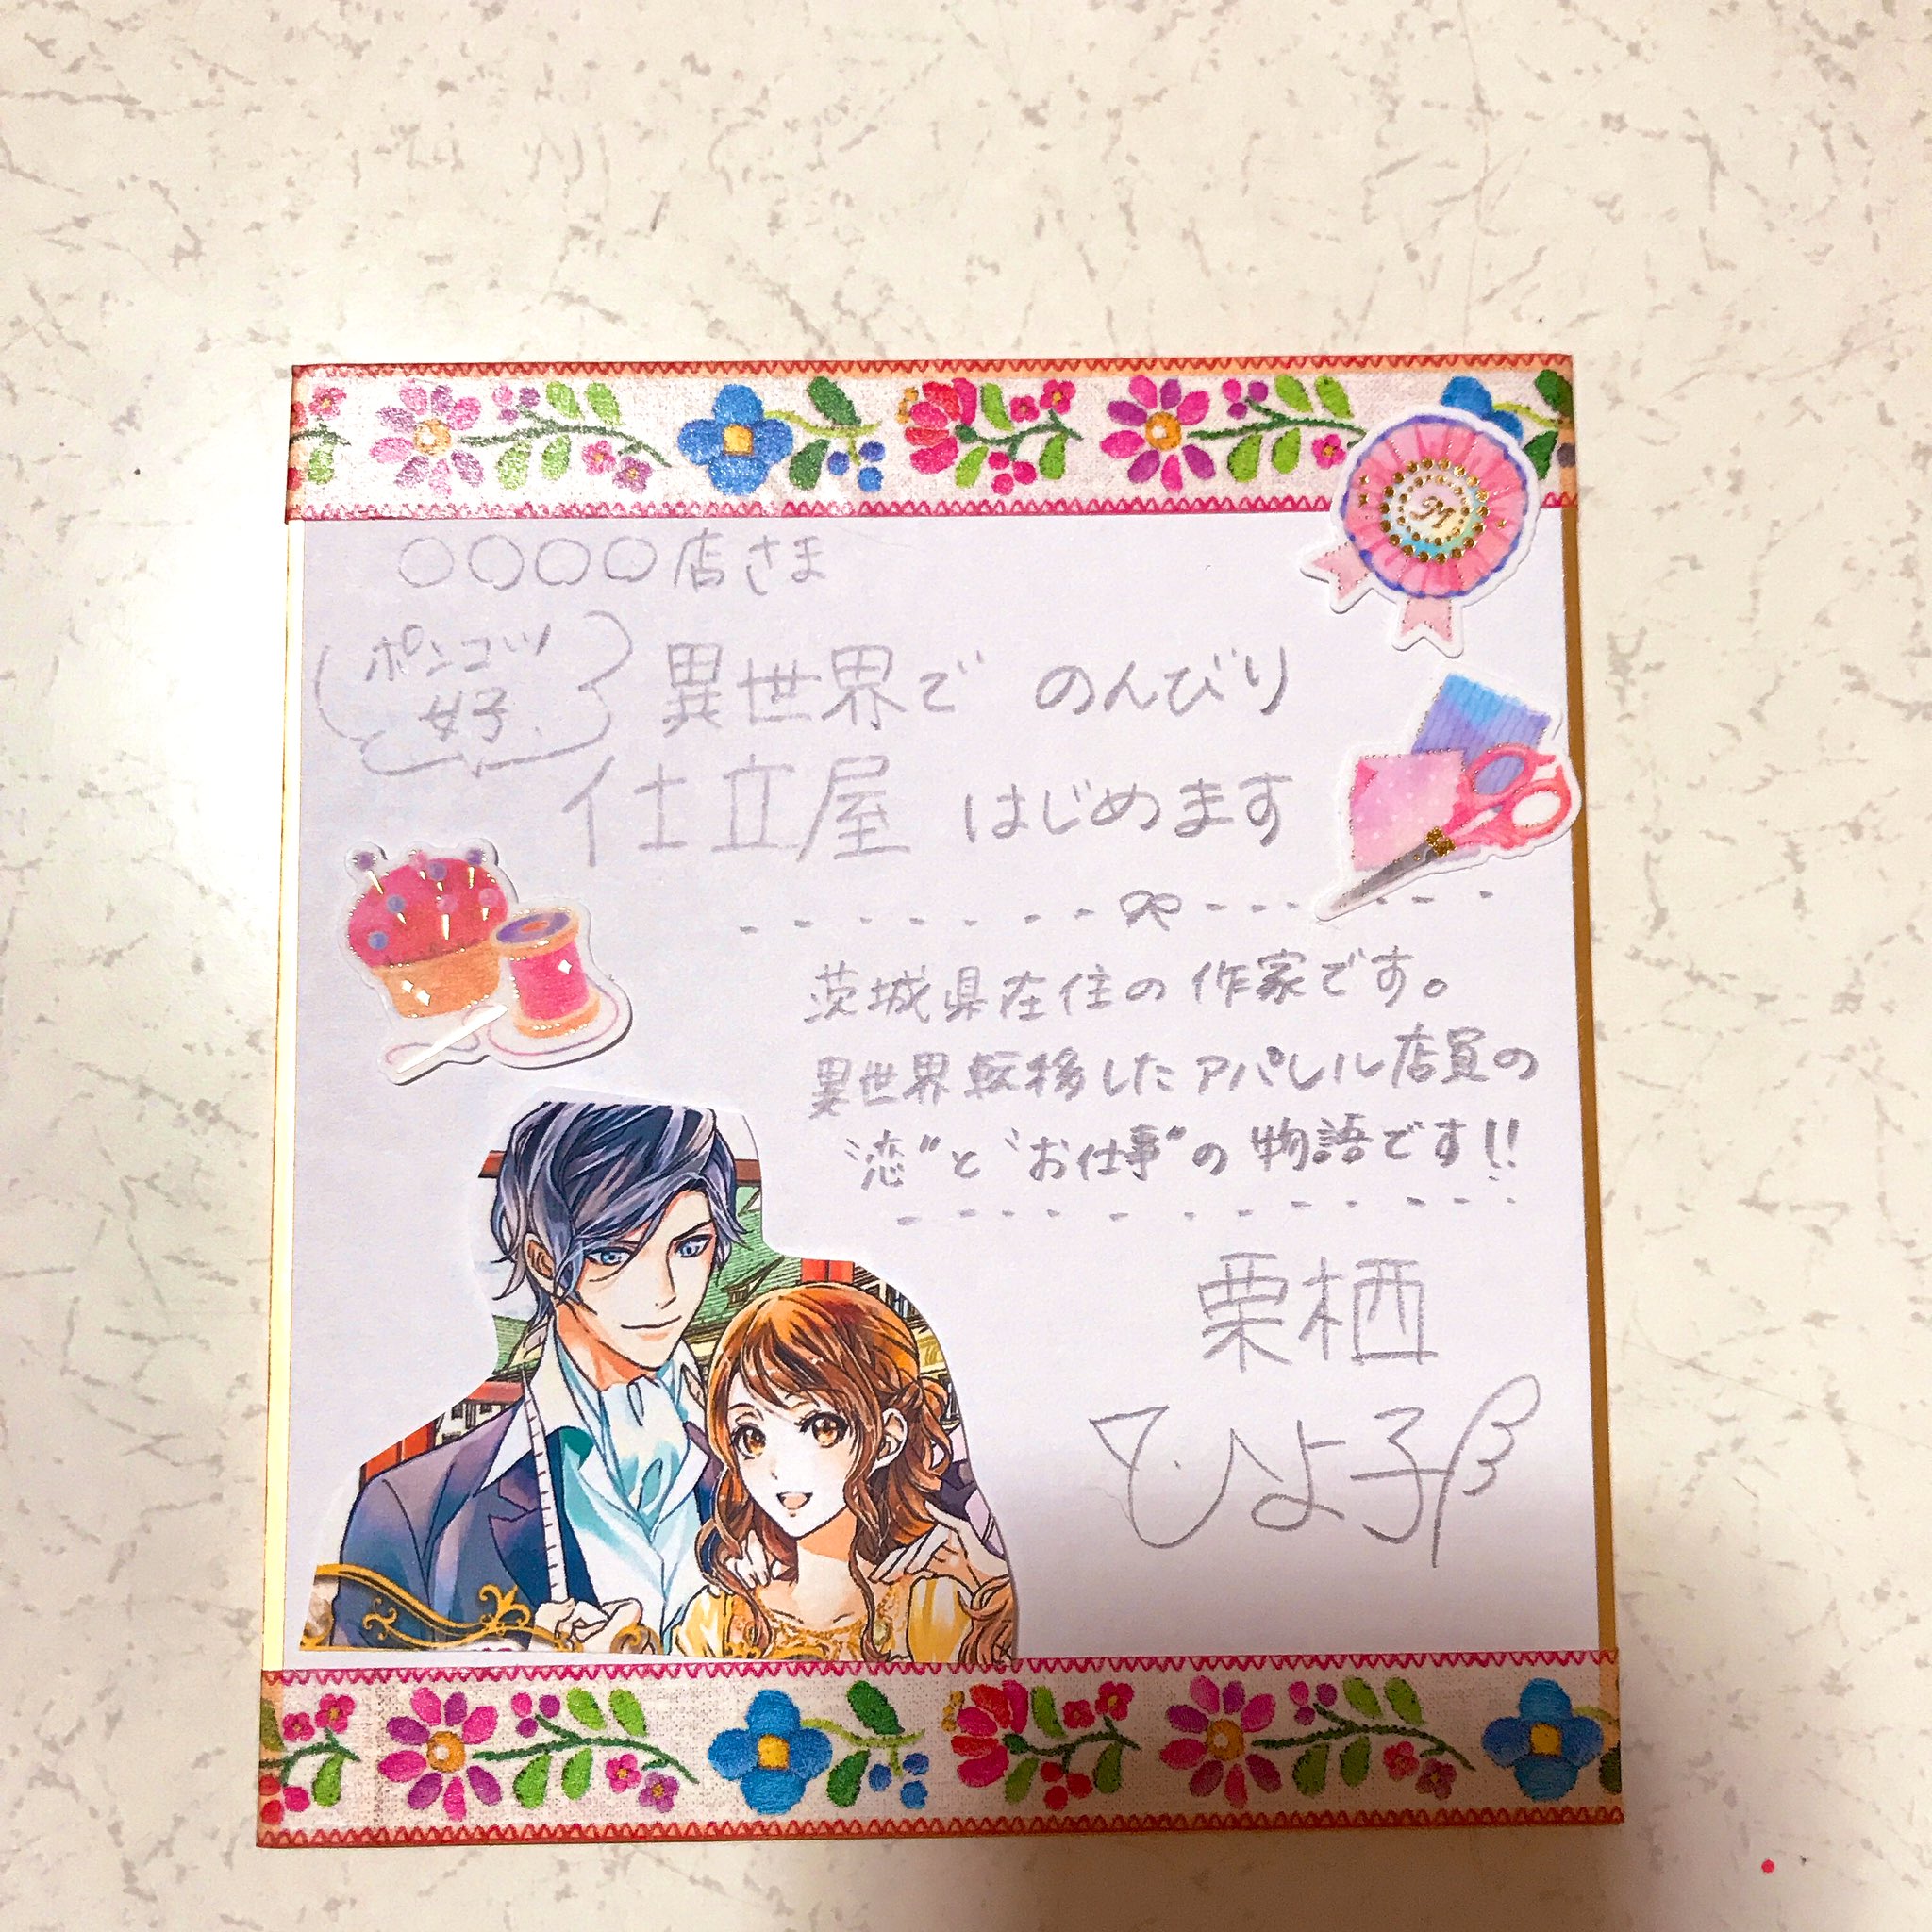 ○○○○店さま
ポンコツ
女子、
異世界で のんびり
仕立屋 はじめます
M
茨城県在住の作家です。
異世界転移したアパレル店員の
〝恋〟と〝お仕事〟の物語です!!
栗栖
ひよ子